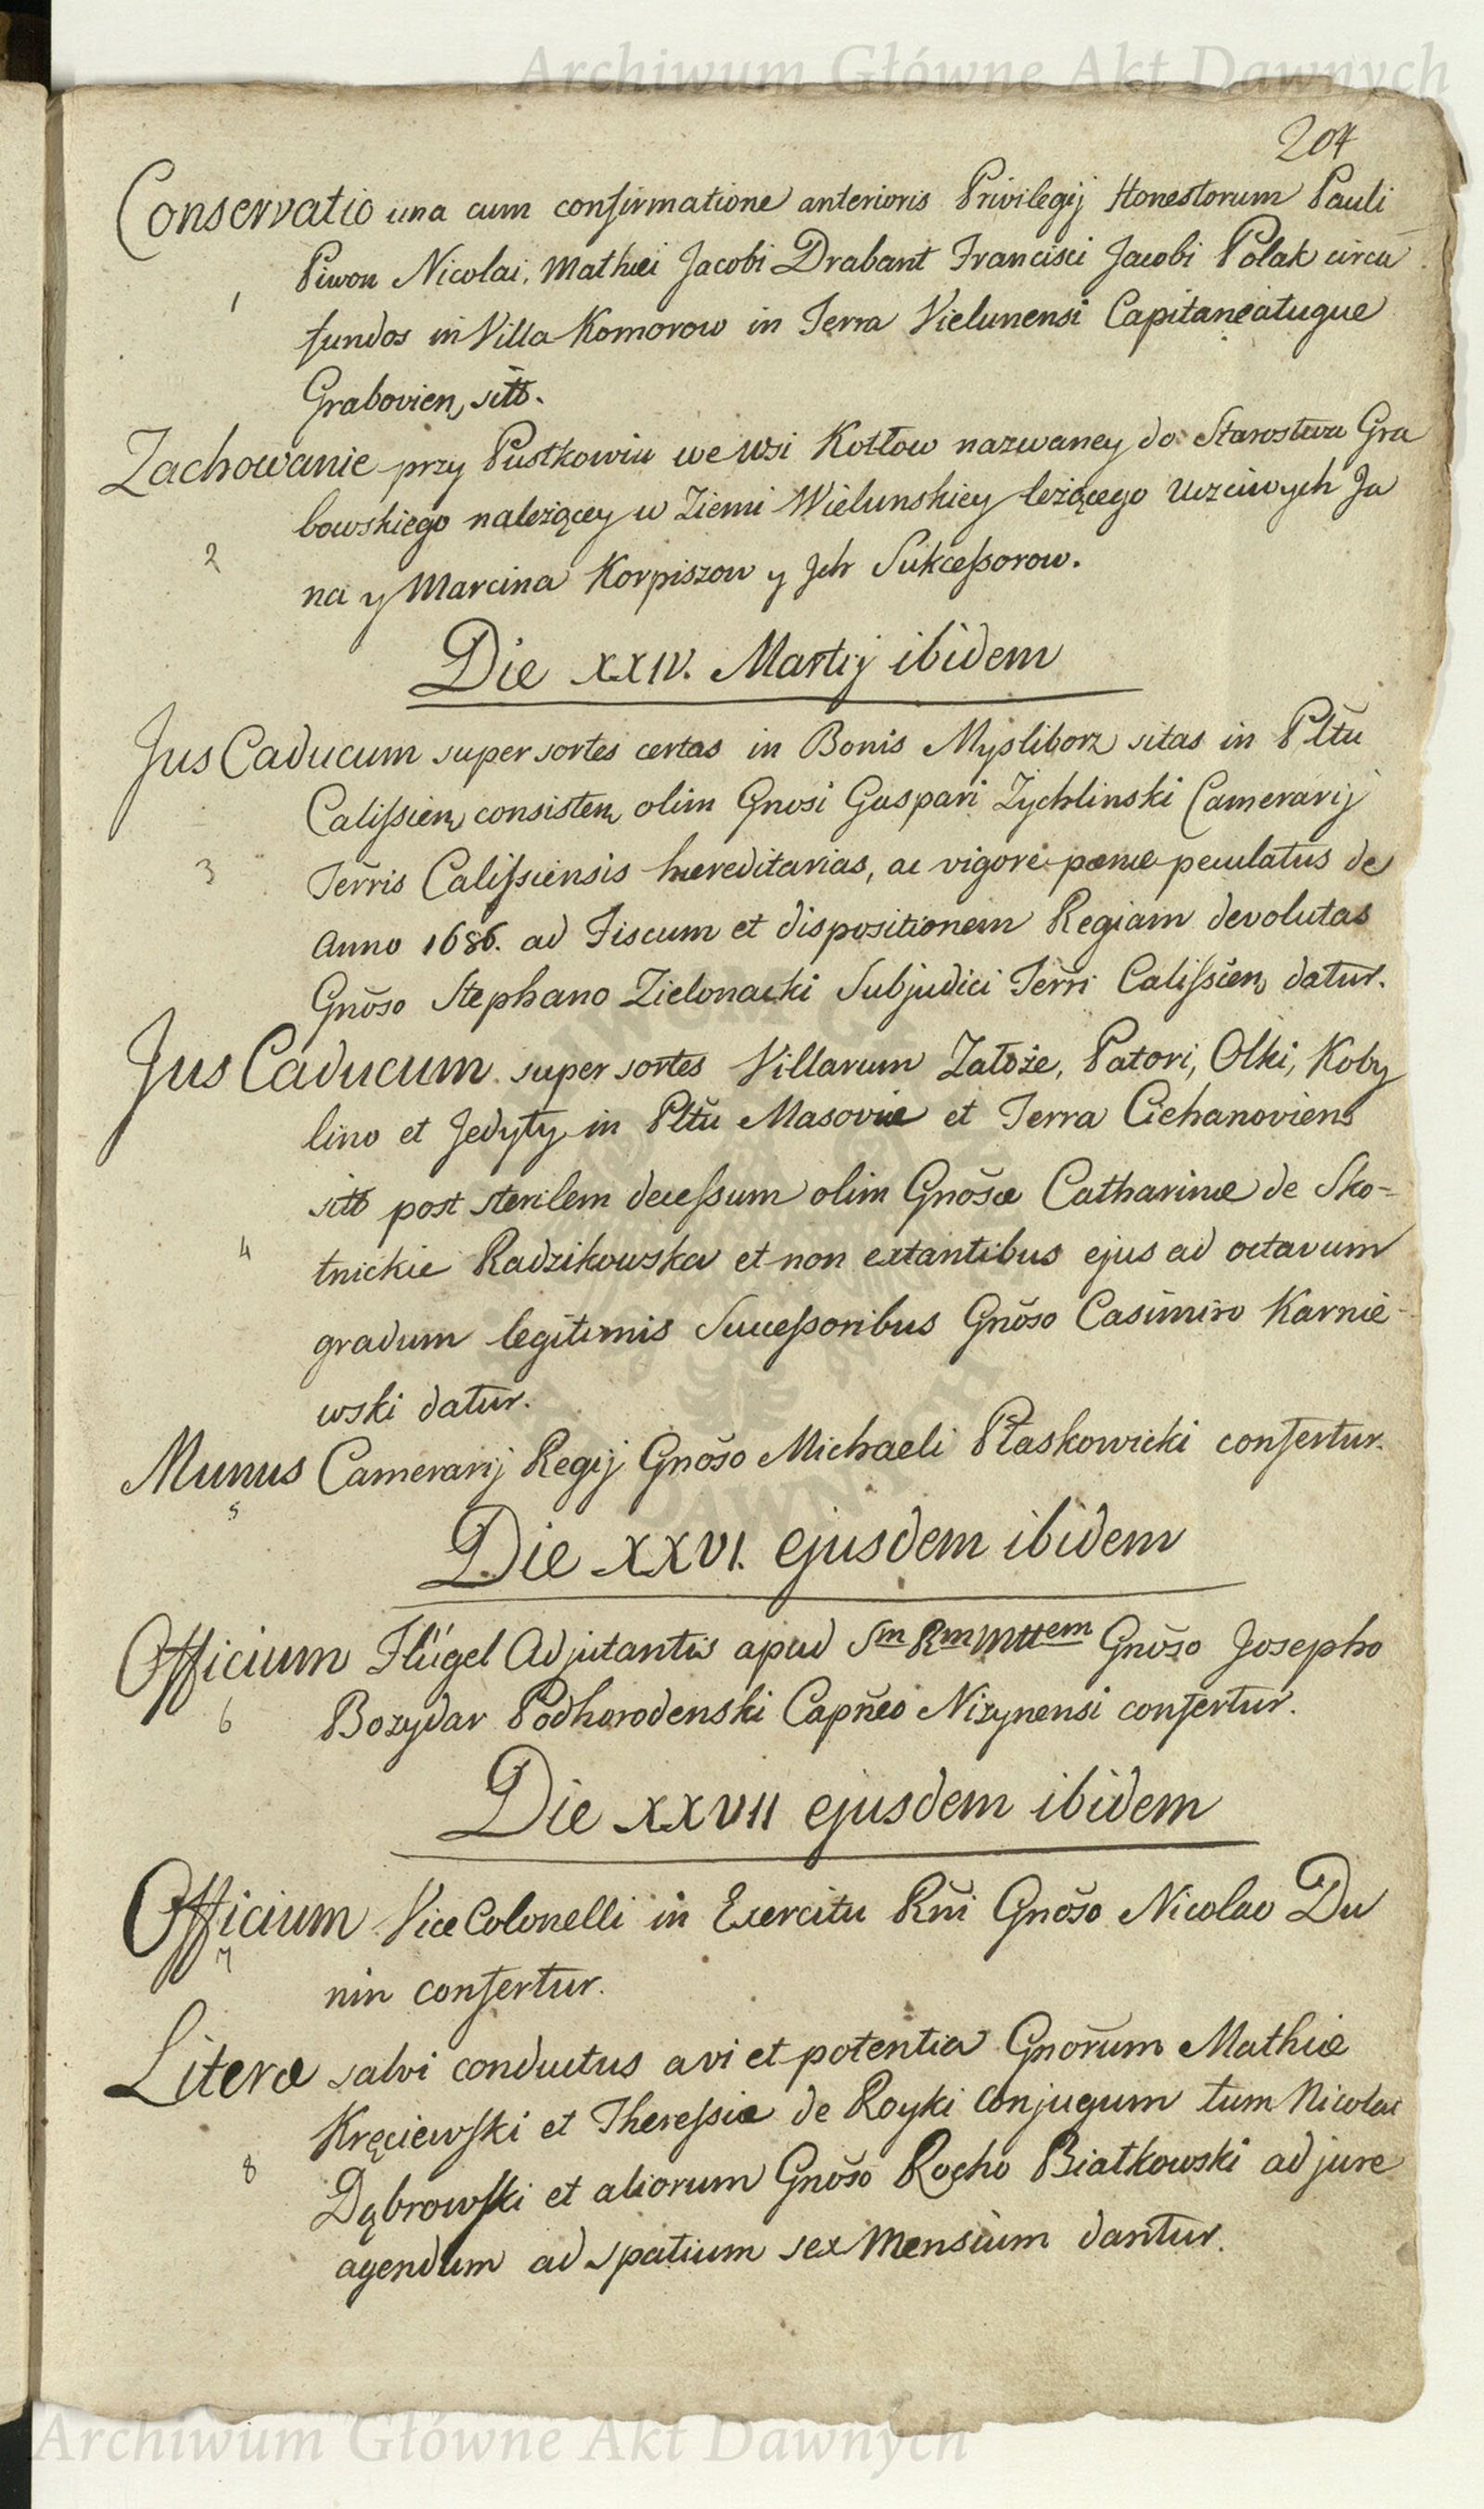 Archiwum Główne Akt Dawnych
204
Conservatio una cum confirmatione anterioris Privilegij Honestorum Pauli
Piwon Nicolai, Mathæi Jacobi Drabant Francisci Jacobi Polak circa
1
fundos in Villa Komorow in Terra Vielunensi Capitaneatuque
Grabovien, sitõ.
Zachowanie przy Pustkowiu we wsi Kotłow nazwaney do Starostwa Gra
bowskiego należącey w Ziemi Wielunskiey leżącego Uczciwych Ja
2
na y Marcina Korpiszow y Jch Sukcessorow.
Die XXIV. Martij ibidem
Jus Caducum super sortes certas in Bonis Mysliborz sitas in Pltũ
Calissien, consisten, olim Gnosi Gaspari Zychlinski Camerarij
3
Terris Calissiensis hæreditarias, ac vigore pœnæ peculatus de
anno 1686. ad Fiscum et dispositionem Regiam devolutas
Gnõso Stephano Zielonacki Subjudici Terri Calissien, datur.
Jus Caducum super sortes Villarum Założe, Patori, Olki, Koby
lino et Jedyty in Pltũ Masoviæ et Terra Ciehanoviens
sitõ post sterilem decessum olim Gnõsæ Catharinæ de Sko-
4
tnickie Radzikowska et non extantibus ejus ad octavum
gradum legitimis Successoribus Gnõso Casimiro Karnie-
wski datur.
Munus Camerarij Regij Gnõso Michaeli Płaskowicki confertur.
5
Die XXVI. ejusdem ibidem
Officium Flügel Adjutantis apud Sm Rm Mttem Gnõso Josepho
6
Bozydar Podhorodenski Capñeo Nizynensi confertur.
Die XXVII ejusdem ibidem
Officium Vice Colonelli in Exercitu Rñi Gnõso Nicolao Du
7
nin confertur.
Literæ salvi conductus a vi et potentia Gnõrum Mathiæ
Kręciewski et Theressiæ de Royki Conjugum tum Nicolai
8
Dąbrowski et aliorum Gnõso Rocho Białkowski ad jure
agendum ad spatium sex Mensium dantur.
Archiwum Główne Akt Dawnych